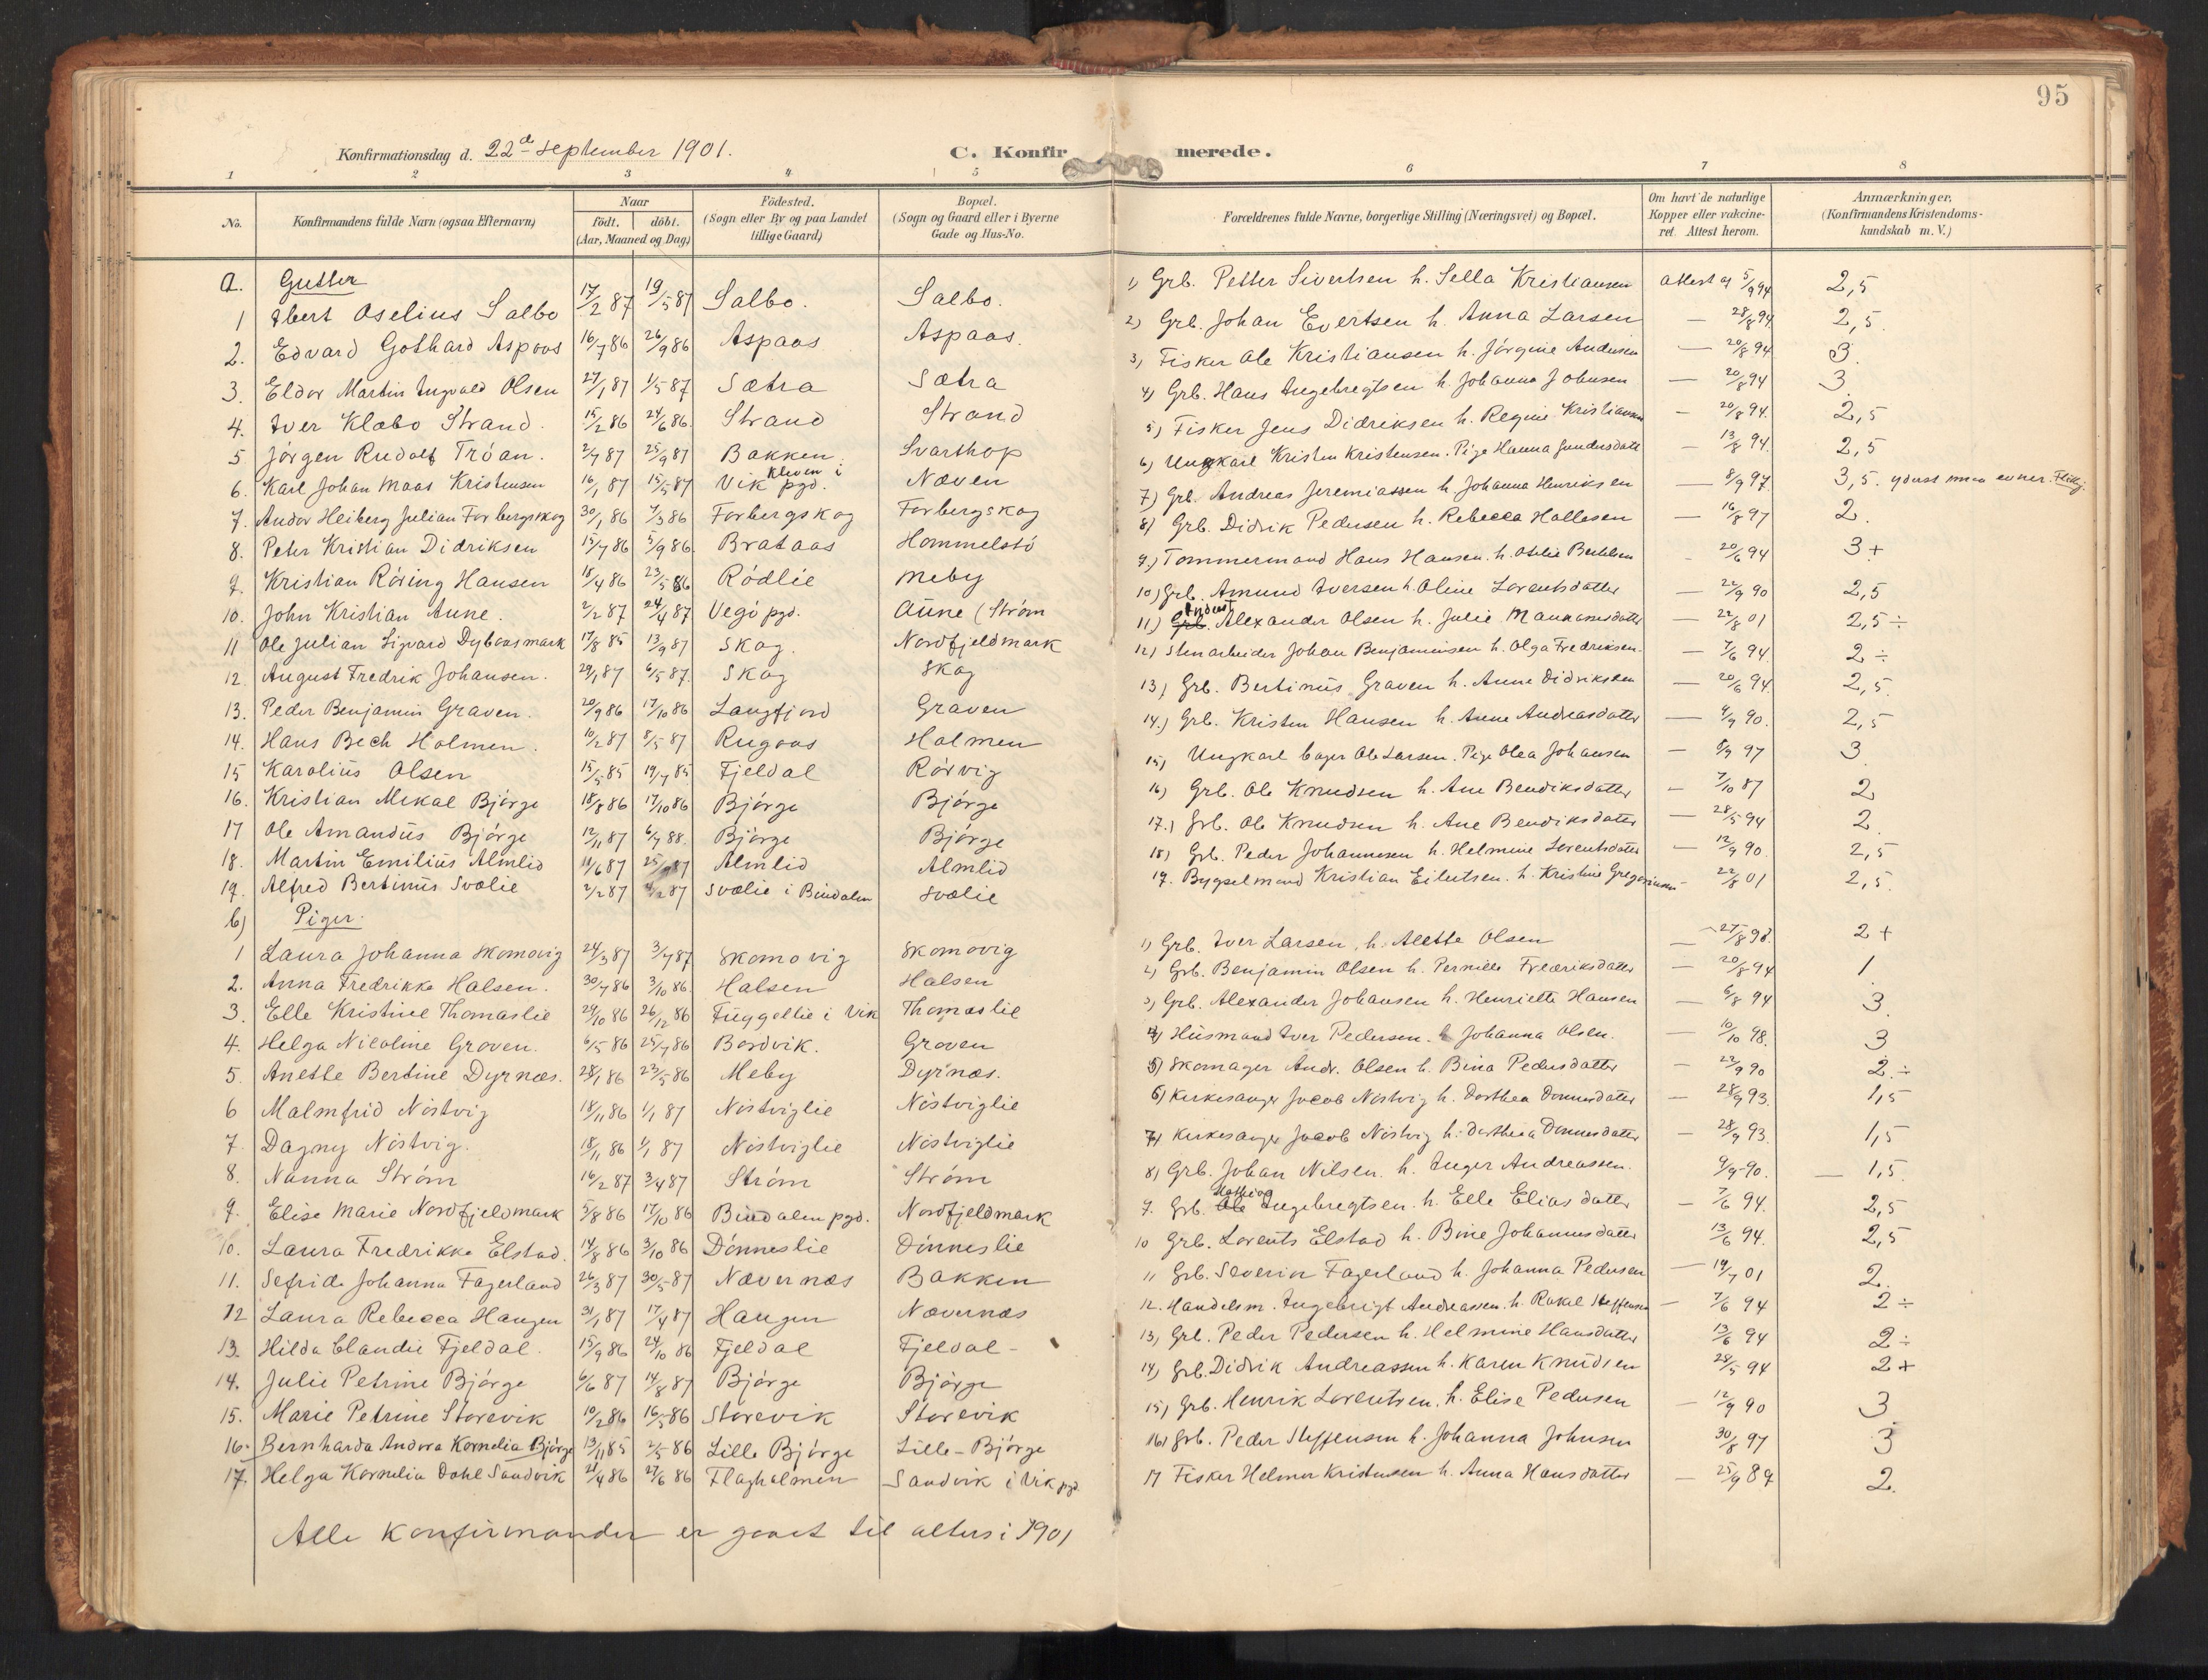 95
Konfirmationsdag d. 22de September 1901.
C. Konfirmerede.
1 2 3 4 5 6 7 8
No. Konfirmandens fulde Navn (ogsaa Efternavn) Naar født. døbt. (Aar, Maaned og Dag) Fødested. (Sogn eller By og paa Landet tillige Gaard) Bopæl. (Sogn og Gaard eller i Byerne Gade og Hus-No. Forældrenes fulde Navne, borgerlige Stilling (Næringsvei) og Bopæl. Om havt de naturlige Kopper eller vakcineret. Attest herom. Anmærkninger, (Konfirmandens Kristendomskundskab m. V.)
a. Gutter
1 Ebert Oselius Salbo 17/2 87 19/5 87 Salbo. Salbo. 1) Grb. Petter Sivertsen h. Sella Kristiansen attest af 5/9 94 2,5
2. Edvard Gothard Aspaas 16/7 86 26/9 86 Aspaas Aspaas. 2) Grb. Johan Evertsen h. Anna Larsen — 28/8 94 2,5.
3. Eldor Martin Ingvald Olsen 27/1 87 1/5 87 Sætra Sætra 3) Fisker Ole Kristiansen h. Jørgine Andersen — 20/8 94 3.
4. Iver Klæbo Strand. 15/2 86 24/6 86. Strand Strand 4) Grb. Hans Ingebregtsen h. Johanna Johnsen — 20/8 94 3.
5 Jørgen Rudolf Tróan. 2/7 87 25/9 87 Bakken Svarthop 5) Fisker Jens Didriksen h. Regine Kristiansen — 20/8 94. 2,5
6. Karl Johan Maas Kristensen 16/1 87 15/5 87 Kleven i Vik pgd. Næven 6) Ungkarl Kristen Kristensen. Pige Hanna Gundersdatt — 13/8 94. 2,5
7. Andor Heiberg Julian Forbergskog 30/1 86 7/3 86 Forbergskog Forbergskog 7) Grb. Andreas Jeremiassen h. Johanna Henriksen — 8/9 97. 3,5. yderst smaa evner. Flittig.
8. Peter Kristian Didriksen 15/7 86 5/9 86. Brataas Hommelstó 8) Grb. Didrik Pedersen h. Rebecca Hallesen — 16/8 97 2.
9. Kristian Róring Hansen 18/4 86 23/5 86 Ródlie Meby 9.) Tommermand Hans Hansen. h. Otelie Bertelsen - 20/6 94 3+
10. John Kristian Aune. 2/2 87 24/4 87 Vegó pgd. Aune (Strøm 10) Grb. Amund Iversen h. Oline Lorentsdatter — 22/9 90 2,5
11 Ole Julian Sigvard Dybvasmark 17/8 85 13/9 87 Skog. Nordfjeldmark 11) Inderst Alexander Olsen h. Julie Mannesdatter — 22/8 01 2,5 ÷
12. August Fredrik Johansen. 29/1 87 6/5 87. Skog Skog 12) Stenarbeider Johan Benjaminsen h. Olga Fredriksen. — 7/6 94. 2 ÷
13. Peder Benjamin Graven. 20/9 86 17/10 86 Langfjord Graven 13) Grb. Bertinus Graven h. Anne Didriksen — 20/6 94. 2,5.
14. Hans Bech Holmen. 10/2 87 8/5 87 Rugaas Holmen 14.) Grb. Kristen Hansen h. Anne Andreasdatter — 9/9 90. 2,5
15 Karolius Olsen 15/5 85 19/7 85 Fjeldal Rórvig 15) Ungkarl bager Ole Larsen. Pige Olea Johansen — 8/9 97 3.
16. Kristian Mikal Bjórge 18/8 86 17/10 86 Bjórge Bjórge 16) Grb. Ole Knudsen h. Ane Bendiksdatter — 7/10 87 2
17 Ole Amandus Bjórge 12/11 87 6/7 88. Bjórge Bjórge 17.) Grb. Ole Knudsen h. Ane Bendiksdatter — 28/5 94 2.
18. Martin Emilius Almlid 11/6 87 25/9 87 Almlid Almlid 18) Grb. Peder Johannesen h. Helmine Lorentsdatter — 12/9 90. 2,5
19. Alfred Bertinus Svolie 2/2 87 Svolie i Bindalen Svolie 19. Bygselmand Kristian Eilertsen. h. Kristine Gregoriusen — 22/8 01 2,5.
b) Piger.
1 Laura Johanna Skomovig 24/3 87 3/7 87 Skomovig Skomovig 1) Grb. Iver Larsen, h. Alette Olsen — 27/8 98. 2+
2. Anna Fredrikke Halsen. 30/7 86 3/10 86. Halsen Halsen 2) Grb. Benjamin Olsen h. Pernille Fredriksdatter — 20/8 94 1.
3. Elle Kristine Thomaslie 24/10 86 26/12 86 Fuggellie i Vik Thomaslie 3) Grb. Alexander Johansen h. Henriette Hansen — 6/8 94 3.
4. Helga Nicoline Groven. 6/5 86 25/7 86 Bordvik. Groven 4) Husmand Iver Pedersen. h. Johanna Olsen. — 10/10 98. 3
5. Anette Bertine Dyrnæs. 28/1 86 23/5 86 Meby Dyrnæs. 5) Skomager Andr. Olsen h. Bina Pedersdatter — 22/9 90 2. ÷
6 Malmfrid Nóstvig 18/11 86 1/1 87 Nóstviglie Nóstviglie 6) Kirkesanger Jacob Nóstvig h. Dorthea Dónnesdatter — 28/9 93. 1,5
7. Dagny Nóstvig. 18/11 86 1/1 87 Nóstviglie Nóstviglie 7) Kirkesanger Jacob Nóstvig h. Dorthea Dónnesdatter — 28/9 93. 1,5
8. Nanna Stróm 16/2 87 3/4 87 Stróm Stróm 8) Grb. Johan Nilsen. h. Inger Andreassen. 9/9-90. — 1,5
9. Elise Marie Nordfjeldmark 5/8 86 17/10 86 Bindalen pgd. Nordfjeldmark 9. Grb. Mathias Ingebregtsen. h. Elle Eliasdatter — 7/6 94. 2,5
10. Laura Fredrikke Elstad. 14/8 86 3/10 86 Dónneslie Dónneslie 10 Grb. Lorents Elstad h. Bine Johannesdatter 13/6 94. 2,5
11. Sefride Johanna Fagerland 26/3 87 30/5-87 Nævernæs Bakken 11 Grb. Severin Fagerland h. Johanna Pedersen — 19/7 01 2.
12 Laura Rebecca Haugen 31/1 87 17/4 87 Haugen Nævernæs 12. Handelsm. Ingebrigt Andreassen. h. Rakel Steffensen — 7/6 94 2 ÷
13. Hilda Claudie Fjeldal. 15/9 86 24/10 86 Fjeldal Fjeldal - 13) Grb. Peder Pedersen h. Helmine Hansdatter 13/6 94 2 ÷
14. Julie Petrine Bjórge 6/6 87 14/8 87 Bjórge Bjórge 14) Grb. Didrik Andreassen h. Karen Knudsen 28/5 94 2+
15. Marie Petrine Storevik 10/2 86 16/5 86 Storevik Storevik 15) Grb. Henrik Lorentsen. h. Elise Pedersen — 12/9 90 3
16. Bernharda Andora Kornelia Bjórge 13/11 85 2/5 86 Lille Bjórge Lille-Bjórge 16) Grb. Peder Steffensen h. Johanna Johnsen 30/8 97 3
17. Helga Kornelia Dahl Sandvik 21/4 86 27/6 86 Flagholmen Sandvik i Vik pgd. 17 Fisker Helmer Kristensen h. Anna Hansdatter — 25/9 89 2.
Alle Konfirmander er gaaet til alters i 1901